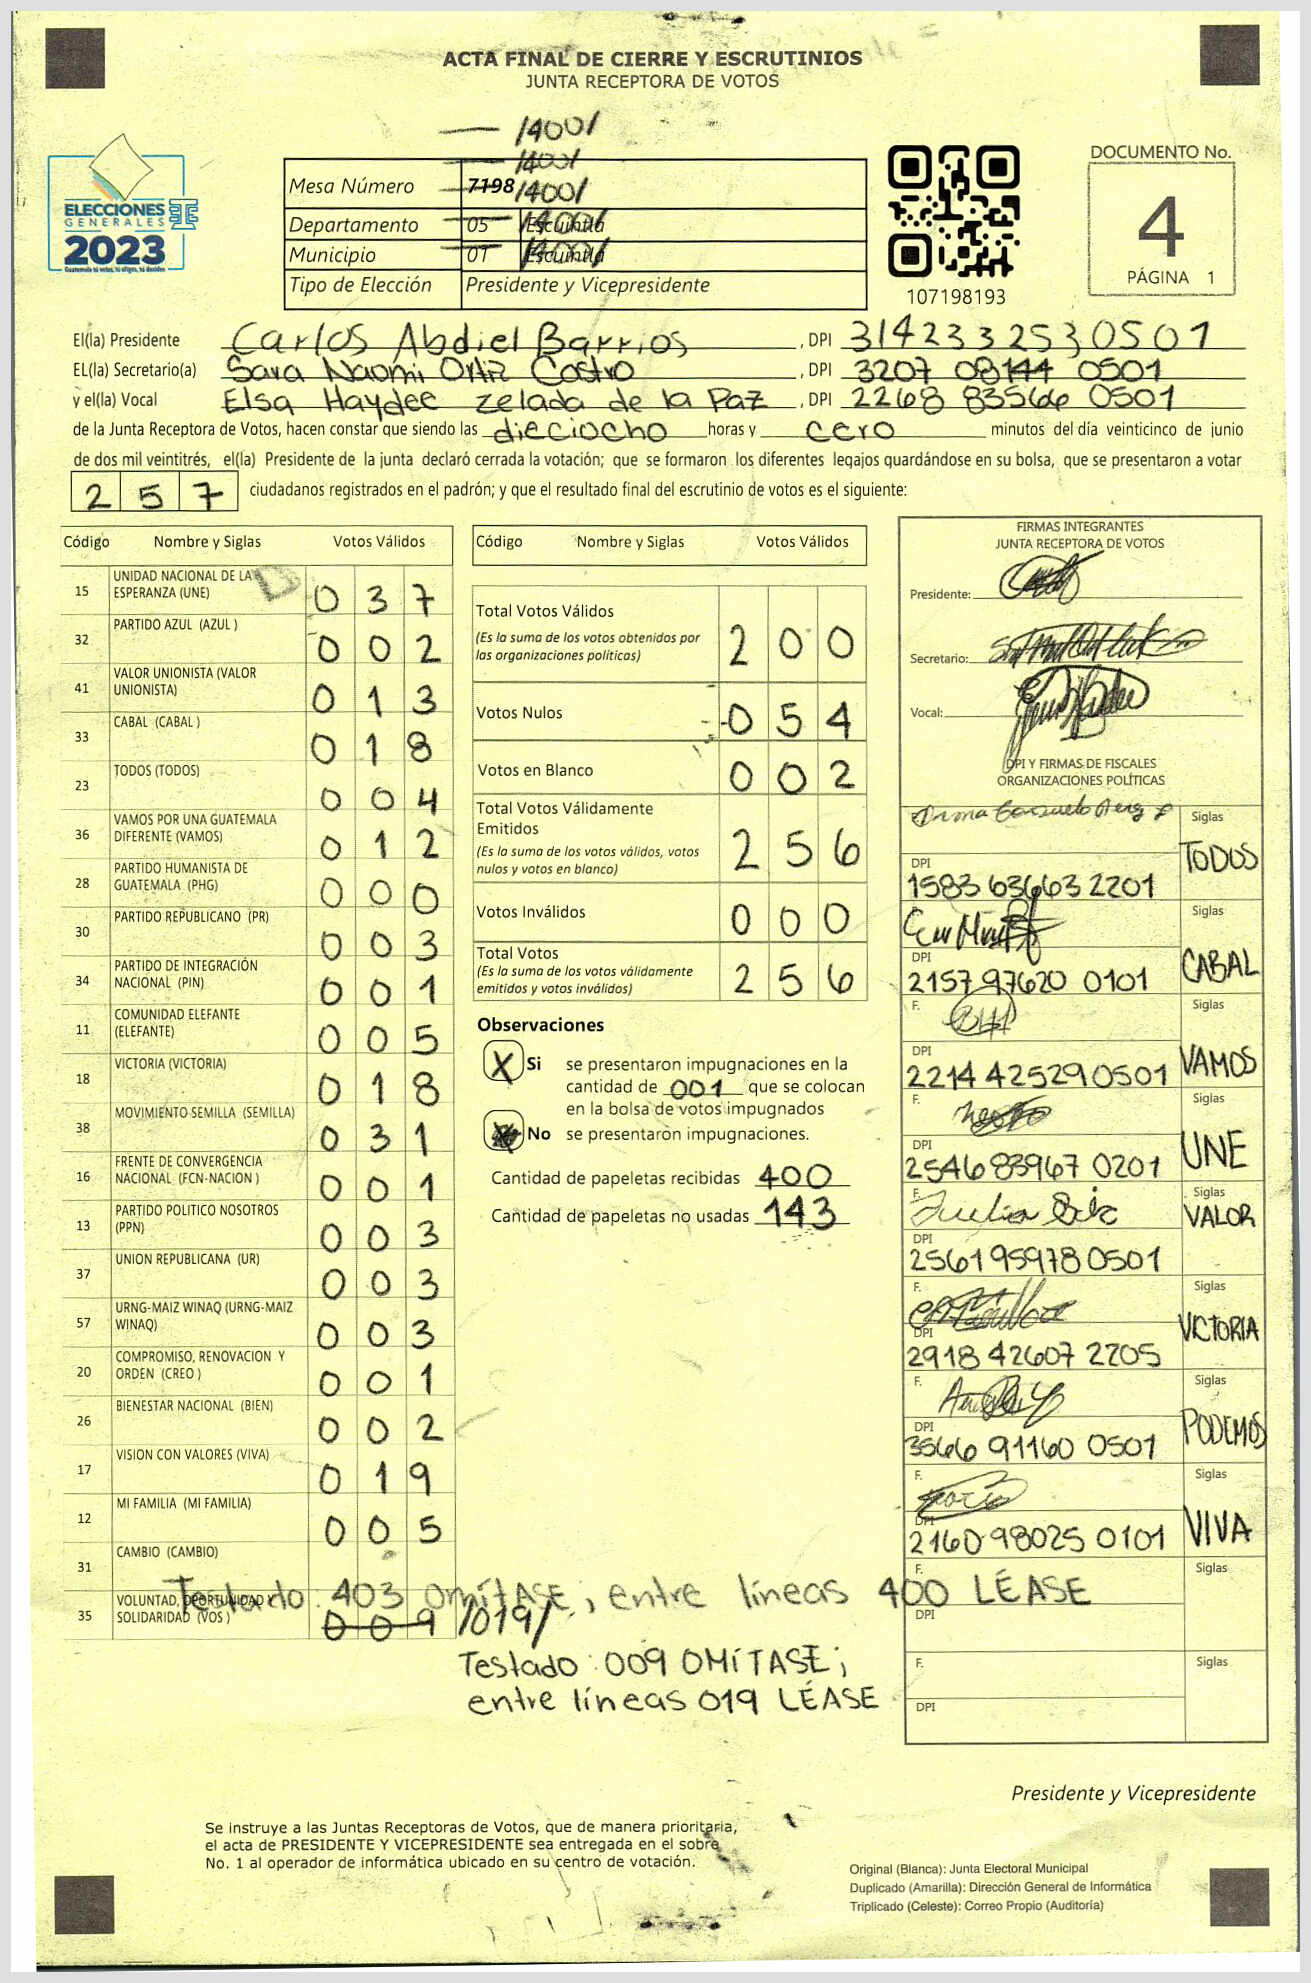 ACTA FINAL DE CIERRE Y ESCRUTINIOS
JUNTA RECEPTORA DE VOTOS
/400/
/400/
Mesa Número 7198 /400/
Departamento 05 Escuintla /400/
Municipio 01 Escuintla /400/
Tipo de Elección Presidente y Vicepresidente
ELECCIONES
GENERALES
2023
Guatemala tú votas, tú eliges, tú decides
107198193
DOCUMENTO No.
4
PÁGINA 1
El(la) Presidente Carlos Abdiel Barrios, DPI 3142332530501
EL(la) Secretario(a) Sara Naomi Ortiz Castro, DPI 3207 08144 0501
y el(la) Vocal Elsa Haydee Zelada de la Paz, DPI 2268 83566 0501
de la Junta Receptora de Votos, hacen constar que siendo las dieciocho horas y cero minutos del día veinticinco de junio
de dos mil veintitrés, el(la) Presidente de la junta declaró cerrada la votación; que se formaron los diferentes legajos guardándose en su bolsa, que se presentaron a votar
257 ciudadanos registrados en el padrón; y que el resultado final del escrutinio de votos es el siguiente:
Código Nombre y Siglas Votos Válidos
15 UNIDAD NACIONAL DE LA ESPERANZA (UNE) 037
32 PARTIDO AZUL (AZUL ) 002
41 VALOR UNIONISTA (VALOR UNIONISTA) 013
33 CABAL (CABAL ) 018
23 TODOS (TODOS) 004
36 VAMOS POR UNA GUATEMALA DIFERENTE (VAMOS) 012
28 PARTIDO HUMANISTA DE GUATEMALA (PHG) 000
30 PARTIDO REPUBLICANO (PR) 003
34 PARTIDO DE INTEGRACIÓN NACIONAL (PIN) 001
11 COMUNIDAD ELEFANTE (ELEFANTE) 005
18 VICTORIA (VICTORIA) 018
38 MOVIMIENTO SEMILLA (SEMILLA) 031
16 FRENTE DE CONVERGENCIA NACIONAL (FCN-NACION ) 001
13 PARTIDO POLITICO NOSOTROS (PPN) 003
37 UNION REPUBLICANA (UR) 003
57 URNG-MAIZ WINAQ (URNG-MAIZ WINAQ) 003
20 COMPROMISO, RENOVACION Y ORDEN (CREO ) 001
26 BIENESTAR NACIONAL (BIEN) 002
17 VISION CON VALORES (VIVA) 019
12 MI FAMILIA (MI FAMILIA) 005
31 CAMBIO (CAMBIO)
Testado: 403 OMÍTASE; entre líneas 400 LÉASE
35 VOLUNTAD, OPORTUNIDAD Y SOLIDARIDAD (VOS ) 009 /019/
Testado: 009 OMÍTASE;
entre líneas 019 LÉASE
Código Nombre y Siglas Votos Válidos
Total Votos Válidos 200
(Es la suma de los votos obtenidos por
las organizaciones políticas)
Votos Nulos 054
Votos en Blanco 002
Total Votos Válidamente
Emitidos 256
(Es la suma de los votos válidos, votos
nulos y votos en blanco)
Votos Inválidos 000
Total Votos 256
(Es la suma de los votos válidamente
emitidos y votos inválidos)
Observaciones
X Si se presentaron impugnaciones en la
cantidad de 001 que se colocan
en la bolsa de votos impugnados
No se presentaron impugnaciones.
Cantidad de papeletas recibidas 400
Cantidad de papeletas no usadas 143
FIRMAS INTEGRANTES
JUNTA RECEPTORA DE VOTOS
Presidente:
Secretario:
Vocal:
DPI Y FIRMAS DE FISCALES
ORGANIZACIONES POLÍTICAS
Siglas TODOS
DPI 1583 63663 2201
Siglas CABAL
DPI 2157 97620 0101
F. Siglas VAMOS
DPI 2214 42529 0501
F. Siglas UNE
DPI 2546 83967 0201
F. Siglas VALOR
DPI 2561 95978 0501
F. Siglas VICTORIA
DPI 2918 42607 2205
F. Siglas PODEMOS
DPI 3566 91160 0501
F. Siglas VIVA
DPI 2160 98025 0101
F. Siglas
DPI
F. Siglas
DPI
Presidente y Vicepresidente
Se instruye a las Juntas Receptoras de Votos, que de manera prioritaria,
el acta de PRESIDENTE Y VICEPRESIDENTE sea entregada en el sobre
No. 1 al operador de informática ubicado en su centro de votación.
Original (Blanca): Junta Electoral Municipal
Duplicado (Amarilla): Dirección General de Informática
Triplicado (Celeste): Correo Propio (Auditoría)